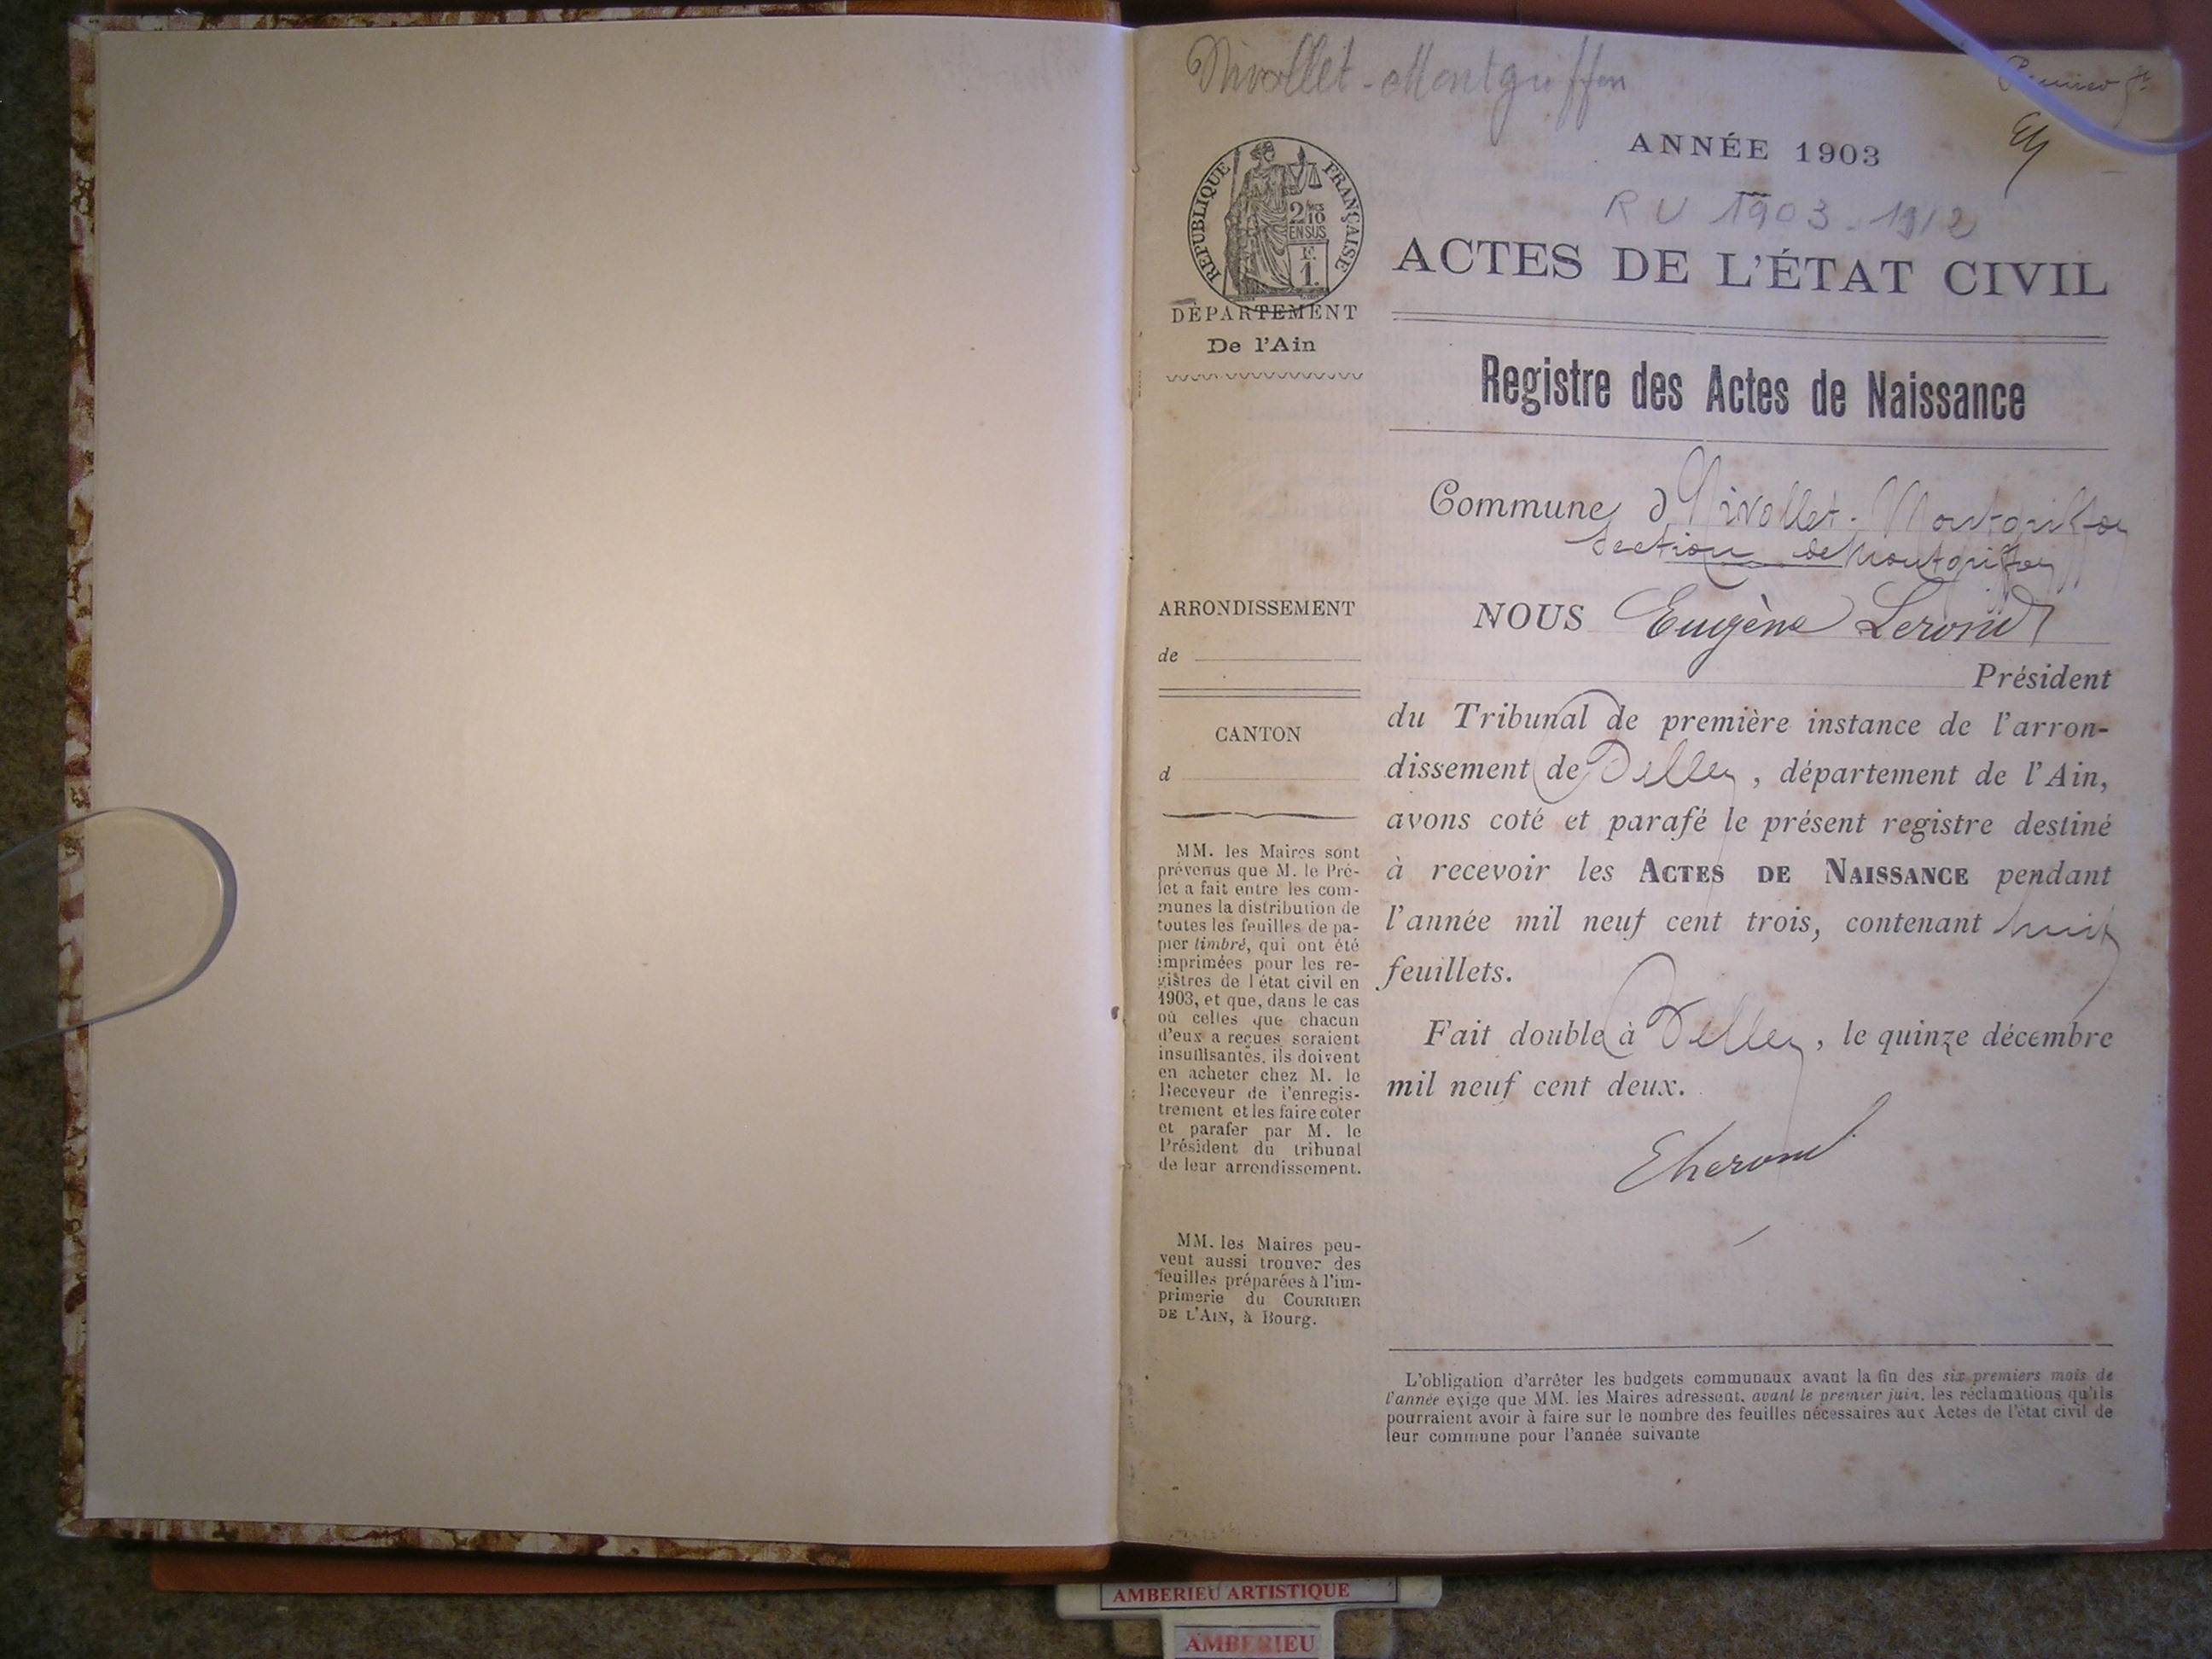 Nivollet-Montgriffon
Premier
ANNÉE 1903
RU 1903-1912
ACTES DE L'ÉTAT CIVIL
RÉPUBLIQUE FRANÇAISE
2/10
EN SUS
F.
1.
DÉPARTEMENT
De l'Ain
Registre des Actes de Naissance
Commune d Nivollet-Montgriffon
Section de Montgriffon
ARRONDISSEMENT
de
CANTON
d
MM. les Maires sont
prévenus que M. le Pré-
fet a fait entre les com-
munes la distribution de
toutes les feuilles de pa-
pier timbré, qui ont été
imprimées pour les re-
gistres de l'état civil en
1903, et que, dans le cas
où celles que chacun
d'eux a reçues seraient
insuffisantes, ils doivent
en acheter chez M. le
Receveur de l'enregis-
trement et les faire coter
et parafer par M. le
Président du tribunal
de leur arrondissement.
MM. les Maires peu-
vent aussi trouver des
feuilles préparées à l'im-
primerie du COURRIER
DE L'AIN, à Bourg.
NOUS Eugène Lerond
Président
du Tribunal de première instance de l'arron-
dissement de Belley, département de l'Ain,
avons coté et parafé le présent registre destiné
à recevoir les ACTES DE NAISSANCE pendant
l'année mil neuf cent trois, contenant huit
feuillets.
Fait double à Belley, le quinze décembre
mil neuf cent deux.
L'obligation d'arrêter les budgets communaux avant la fin des six premiers mois de
l'année exige que MM. les Maires adressent, avant le premier juin, les réclamations qu'ils
pourraient avoir à faire sur le nombre des feuilles nécessaires aux Actes de l'état civil de
leur commune pour l'année suivante
AMBERIEU ARTISTIQUE
AMBERIEU